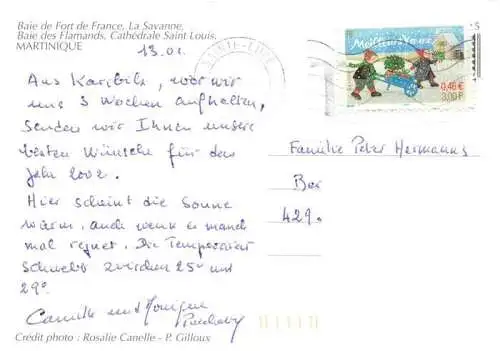 Baie de Fort de France, La Savanne,
Baie des Flamands, Cathédrale Saint Louis,
MARTINIQUE
13.01.
Meilleurs Vœux
0,46 €
3,00 F
Aus Karibik, wor wir
uns 3 Wochen aufhalten,
senden wir Ihnen unsere
besten Wünsche für das
Jahr 2002.
Hier scheint die Sonne
warm, auch wenn es manch
mal regnet. Die Temperatur
schwebt zwischen 25° und
29°.
Camille und Monique
Familie Peter Hermanns
429
Crédit photo : Rosalie Canelle - P. Gilloux